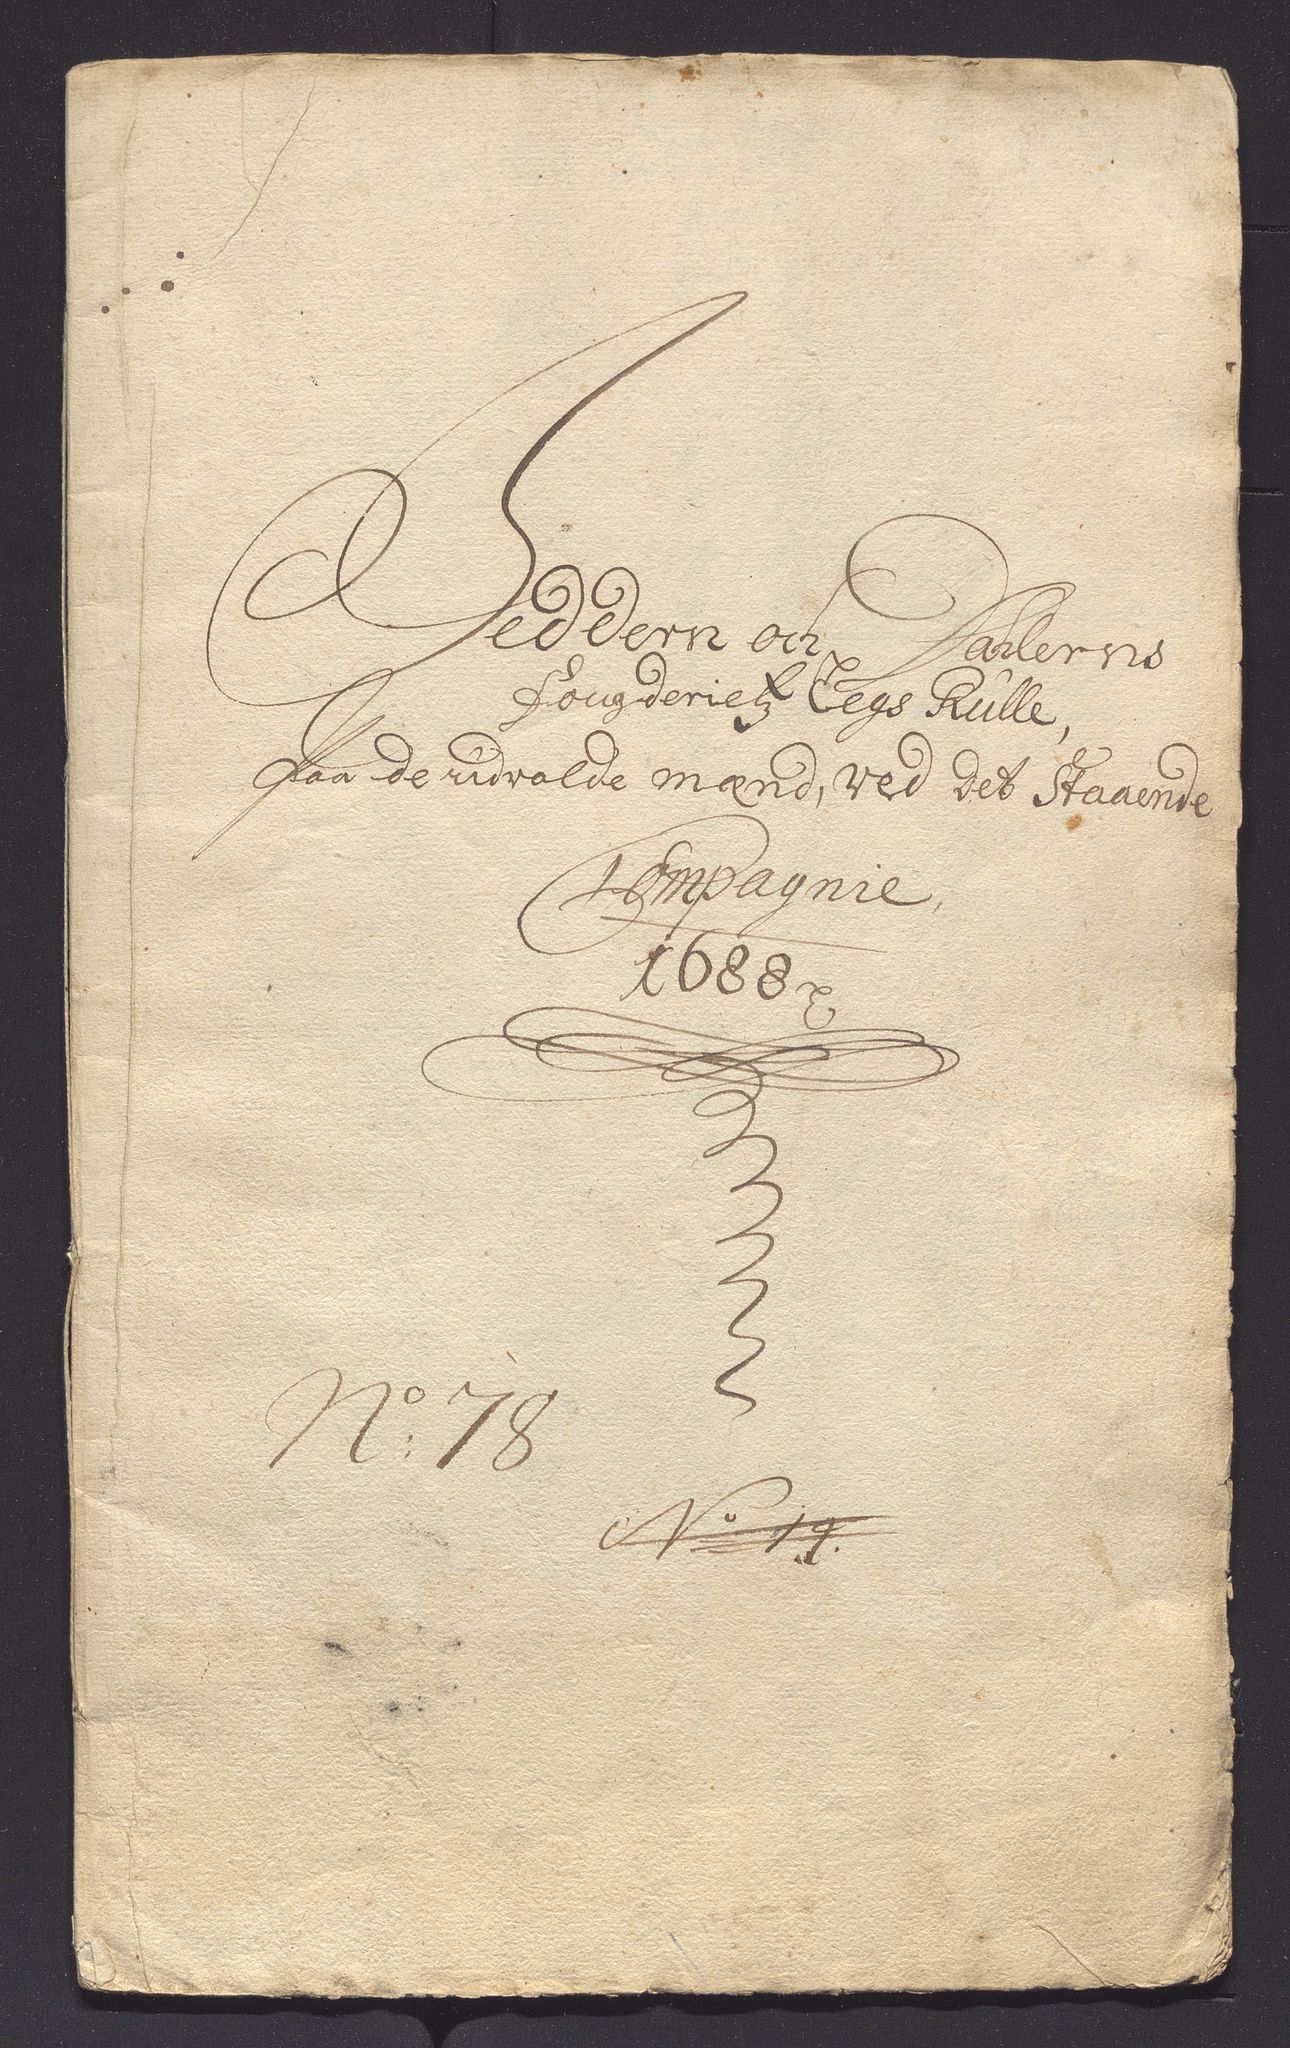 Jeddern och Dahlerns
fougderietz Legs Rülle,
paa de udvalde mænd, ved det Staaende
Compagnie,
1688
No: 78
No 19.